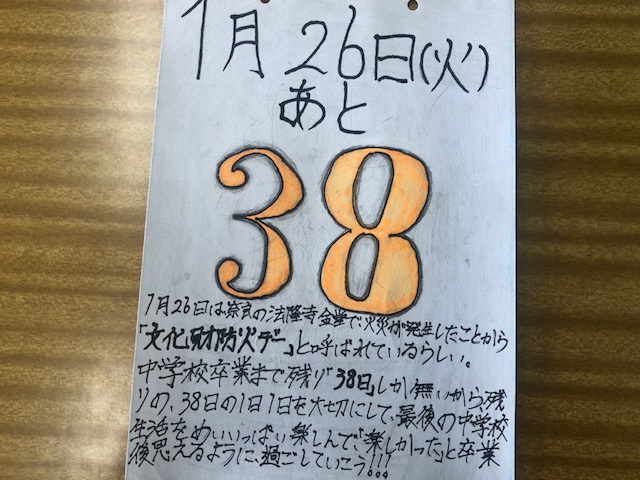 1月26日(火)
あと
38
1月26日は奈良の法隆寺金堂で、火災が発生したことから
「文化財防火デー」と呼ばれているらしい。
中学校卒業まで残り「38日」しか無いから残
りの、38日の1日1日を大切にして、最後の中学校
生活をめいいっぱい楽しんで、「楽しかった」と卒業
後思えるように、過ごしていこう!!!